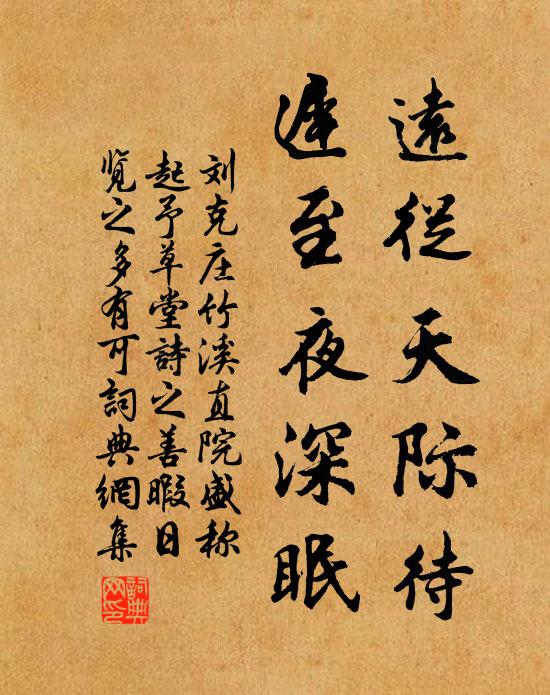 遠從天际待
遲至夜深眠
刘克庄竹溪直院盛称
起予草堂詩之善暇日
览之多有可詞典網集
詞典
网印